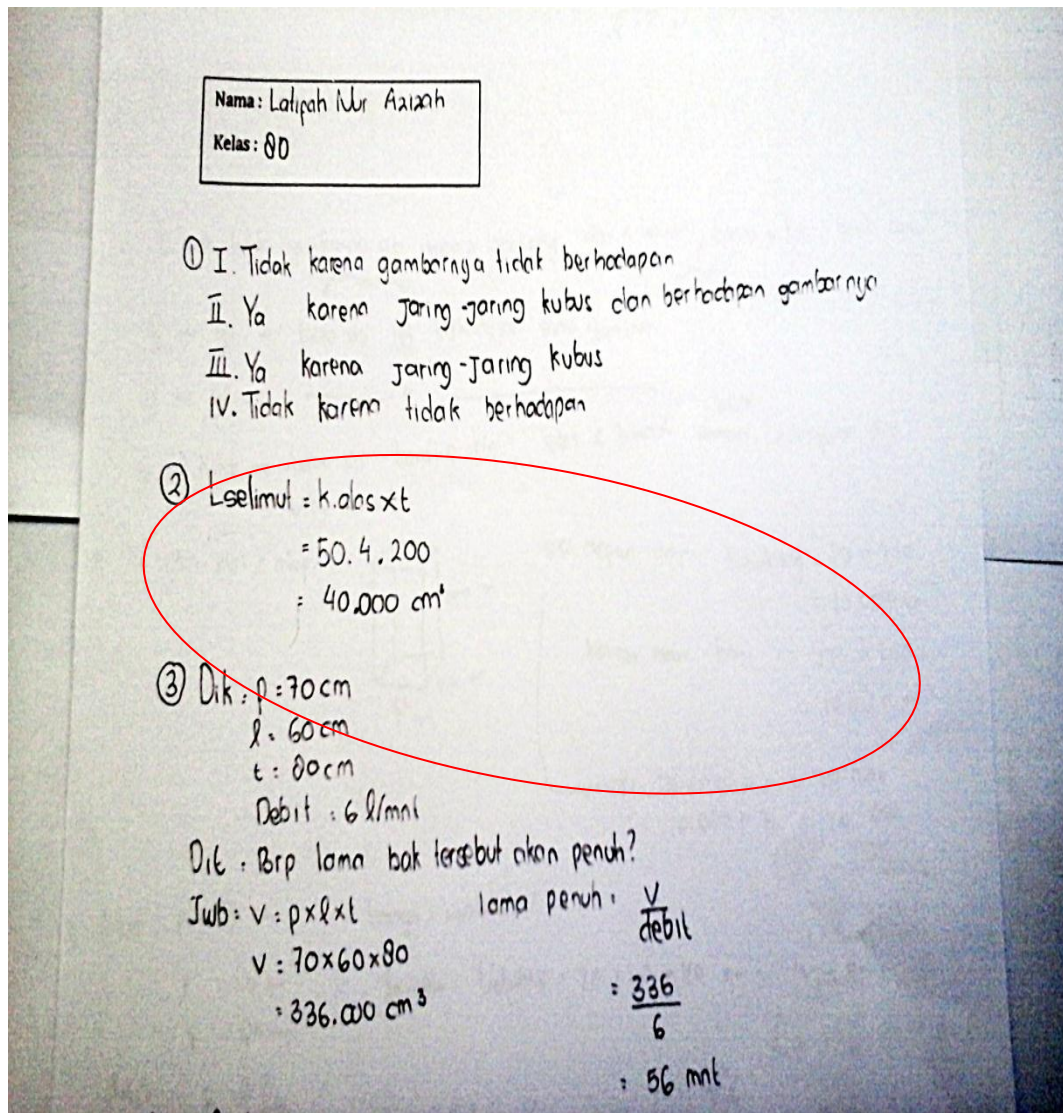 Nama: Latipah Nur Azizah
Kelas: 8D
① I. Tidak karena gambarnya tidak berhadapan
II. Ya karena Jaring-jaring kubus dan berhadapan gambarnya
III. Ya karena Jaring-Jaring kubus
IV. Tidak karena tidak berhadapan
② Lselimut = k.alas x t
= 50. 4. 200
= 40.000 cm
③ Dik: p = 70 cm
l = 60 cm
t = 80 cm
Debit : 6 l/mnt
Dit : Brp lama bak tersebut akan penuh?
Jwb: V = p x l x t
V = 70 x 60 x 80
= 336.000 cm³
lama penuh = V / debit
= 336 / 6
= 56 mnt